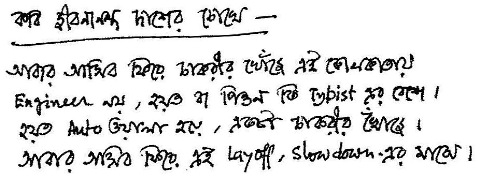 কবি জীবনানন্দ দাশের চোখে —
আবার আসিব ফিরে চাকরীর খোঁজে এই কোলকাতায়
Engineer নয়, হয়ত বা পিওন কি typist এর বেশে।
হয়ত Auto ওয়ালা হয়ে, একটা চাকরীর খোঁজে।
আবার আসিব ফিরে এই Layoff, Slowdown-এর মাঝে।